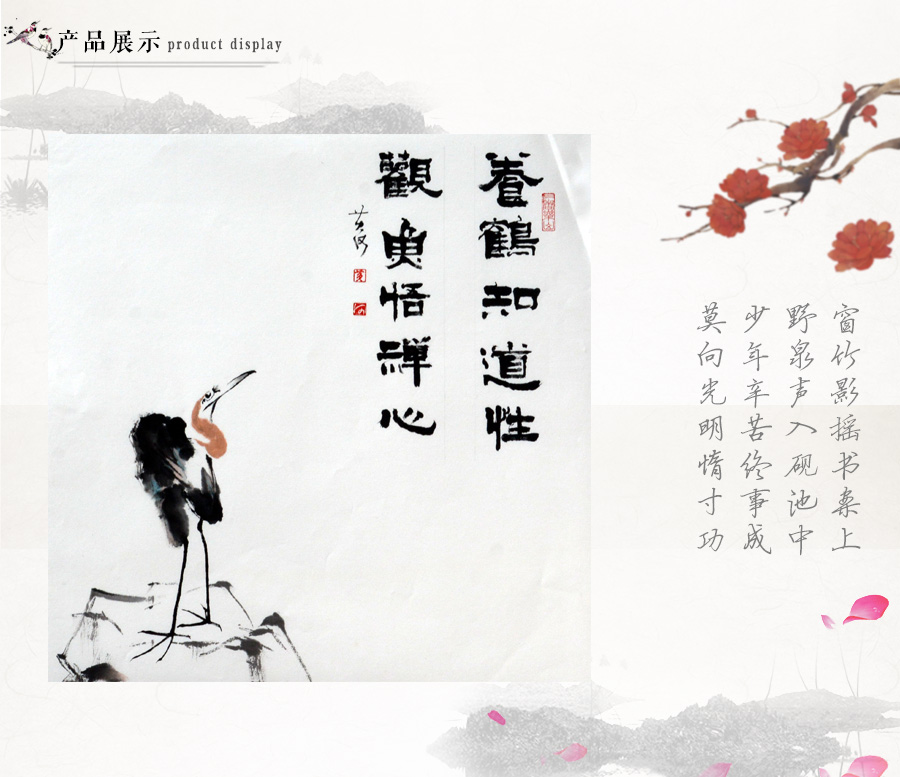 产品展示 product display
養鶴知道性
觀魚悟禪心
窗竹影摇书案上
野泉声入砚池中
少年辛苦终事成
莫向光明惰寸功